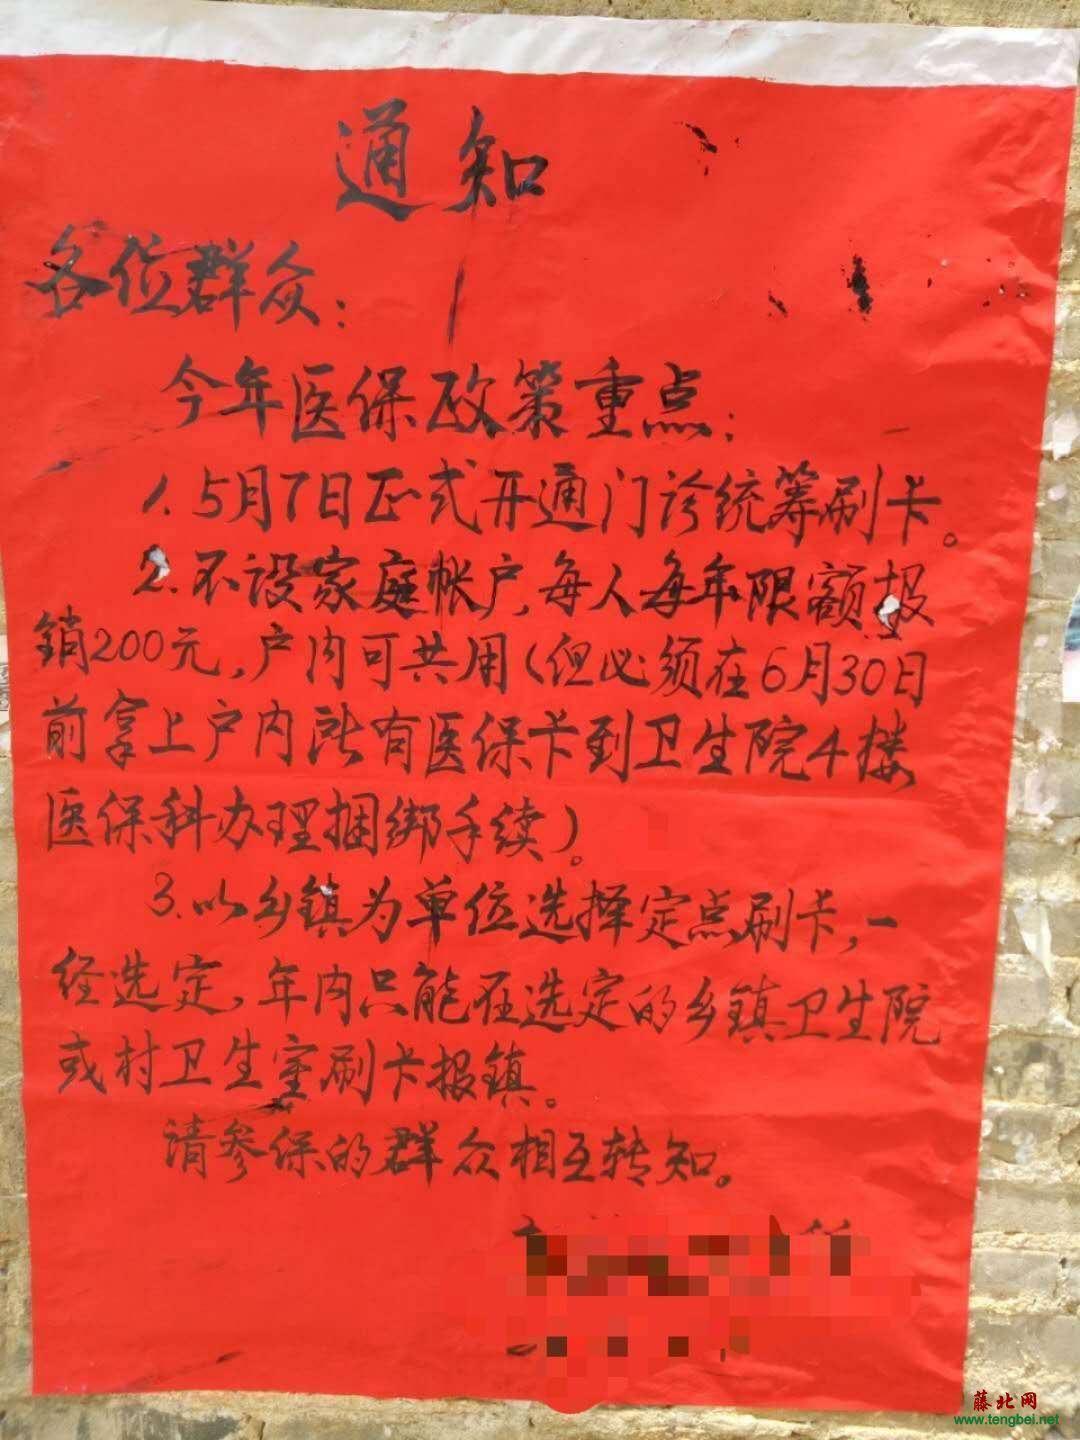 通知
各位群众：
今年医保政策重点：
1.5月7日正式开通门诊统筹刷卡。
2.不设家庭帐户，每人每年限额报
销200元，户内可共用（但必须在6月30日
前拿上户内所有医保卡到卫生院4楼
医保科办理捆绑手续）。
3.以乡镇为单位选择定点刷卡，一
经选定，年内只能在选定的乡镇卫生院
或村卫生室刷卡报镇。
请参保的群众相互转知。
藤北网
www.tengbei.net